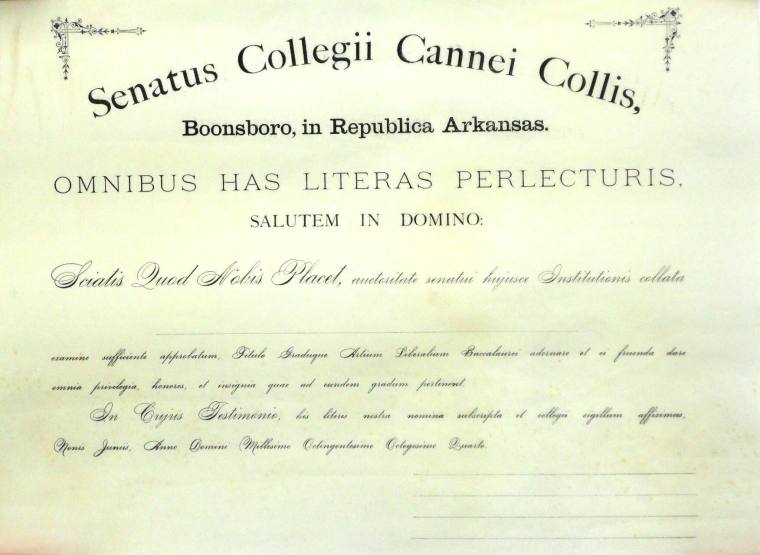 Senatus Collegii Cannei Collis,
Boonsboro, in Republica Arkansas.
OMNIBUS HAS LITERAS PERLECTURIS,
SALUTEM IN DOMINO:
Sciatis Quod Nobis Placet, auctoritate senatui hujusce Institutionis collata
examine sufficiente approbatum, Titulo Graduque Artium Liberalium Baccalaurei adornare et ei fruenda dare
omnia privilegia, honores, et insignia quae ad eundem gradum pertinent.
In Cujus Testimonio, his literis nostra nomina subscripta et collegii sigillum affiximus,
Nonis Juniis, Anno Domini Millesimo Octingentesimo Octogesimo Quarto.